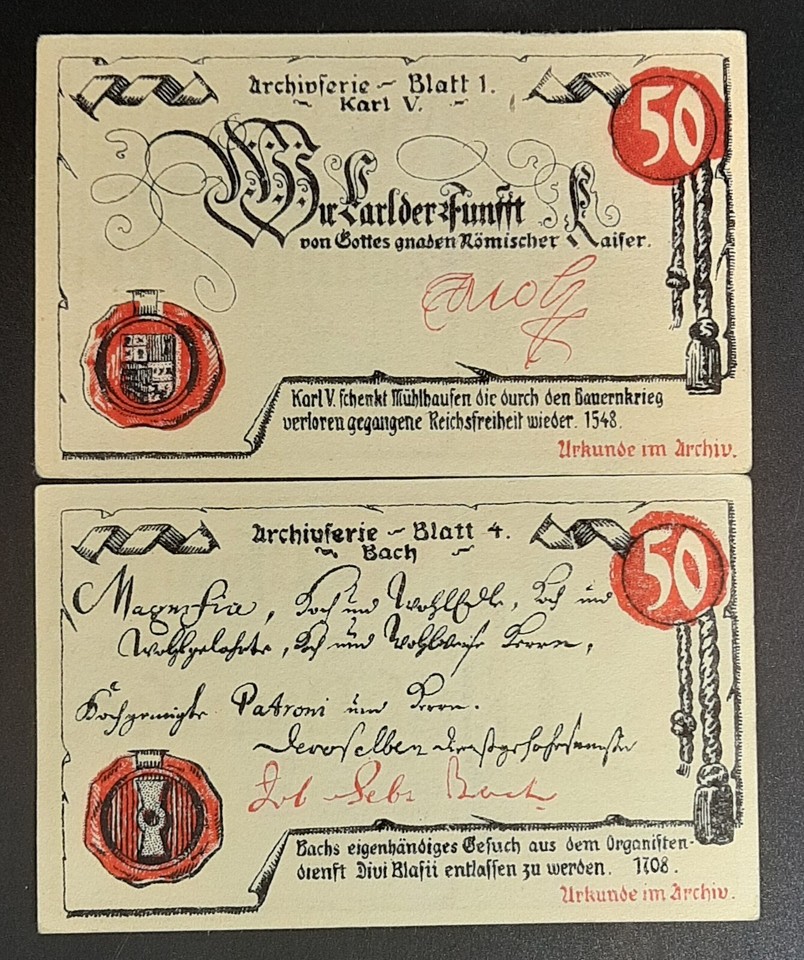 Archivserie - Blatt 1.
~ Karl V. ~
50
Wir Carl der Funfft
von Gottes gnaden Römischer Kaiser.
Carol
Karl V. schenkt Mühlhausen die durch den Bauernkrieg
verloren gegangene Reichsfreiheit wieder. 1548.
Urkunde im Archiv.
Archivserie ~ Blatt 4.
~ Bach ~
50
Magnifice, Hoch und WohlEdle, Hoch und
Wohlgelahrte, Hoch und Wohlweise Herren,
Hochgeneigte Patroni und Herren.
Deroselben dienstgehorsamster
Joh Sebi Bach
Bachs eigenhändiges Gesuch aus dem Organisten-
dienst Divi Blasii entlassen zu werden. 1708.
Urkunde im Archiv.